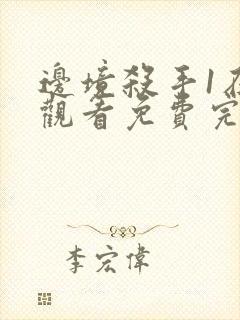 邊境殺手1在
觀看免費完
李宏偉